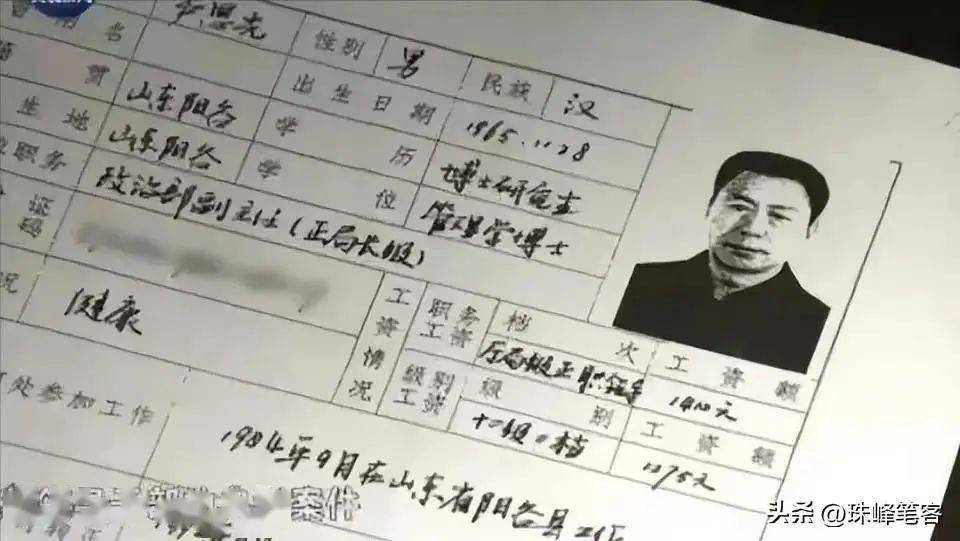 用名 恩光 性别 男 民族 汉
贯 山东阳谷 出生日期 1965.11.28
生地 山东阳谷 学历 博士研究生
职务 政治部副主任(正局长级) 学位 管理学博士
证
况 健康 工资情况 职务工资 档次 工资额
厅局级正职
级别工资 级别 工资额
十一级 档 1275元
处参加工作 1984年9月在山东省阳谷县工作
案件
头条 @珠峰笔客